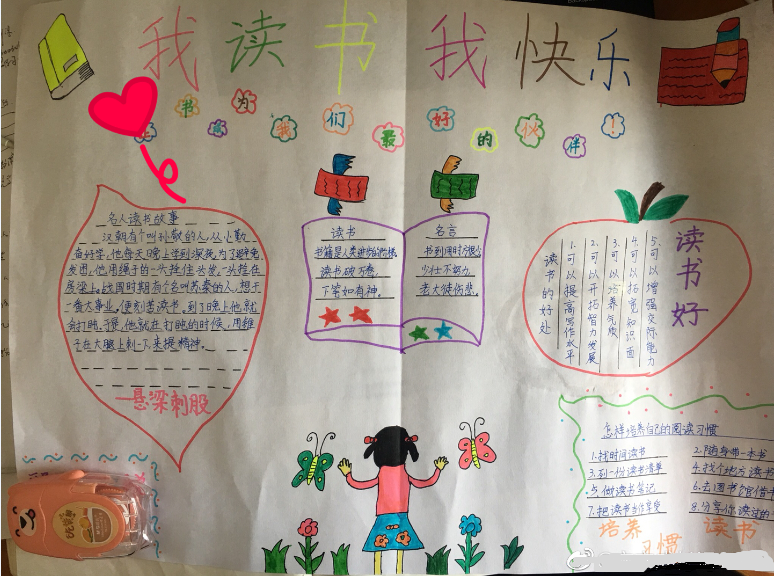 我读书 我快乐
书为
我们最好的伙伴！
名人读书故事
汉朝有个叫孙敬的人,从小勤
奋好学,他每天晚上学到深夜,为了避免
发困,他用绳子的一头拴住头发,一头拴在
房梁上。战国时期有个名叫苏秦的人,想干
一番大事业,便刻苦读书。到了晚上他就
会打盹,于是,他就在打盹的时候,用锥
子在大腿上刺一下来提精神。
悬梁刺股
读书
书籍是人类进步的阶梯
读书破万卷,
下笔如有神。
名言
书到用时方恨少
少壮不努力
老大徒伤悲。
读书好
5.可以增强交际能力
4.可以拓宽知识面
3.可以培养气质
2.可以开拓智力发展
1.可以提高写作水平
读书的好处
怎样培养自己的阅读习惯
1.找时间读书
2.随身带一本书
3.列一份读书清单
4.找个地方读书
5.做读书笔记
6.去图书馆借书
7.把读书当作享受
8.分享你读过的
培养 读书
习惯